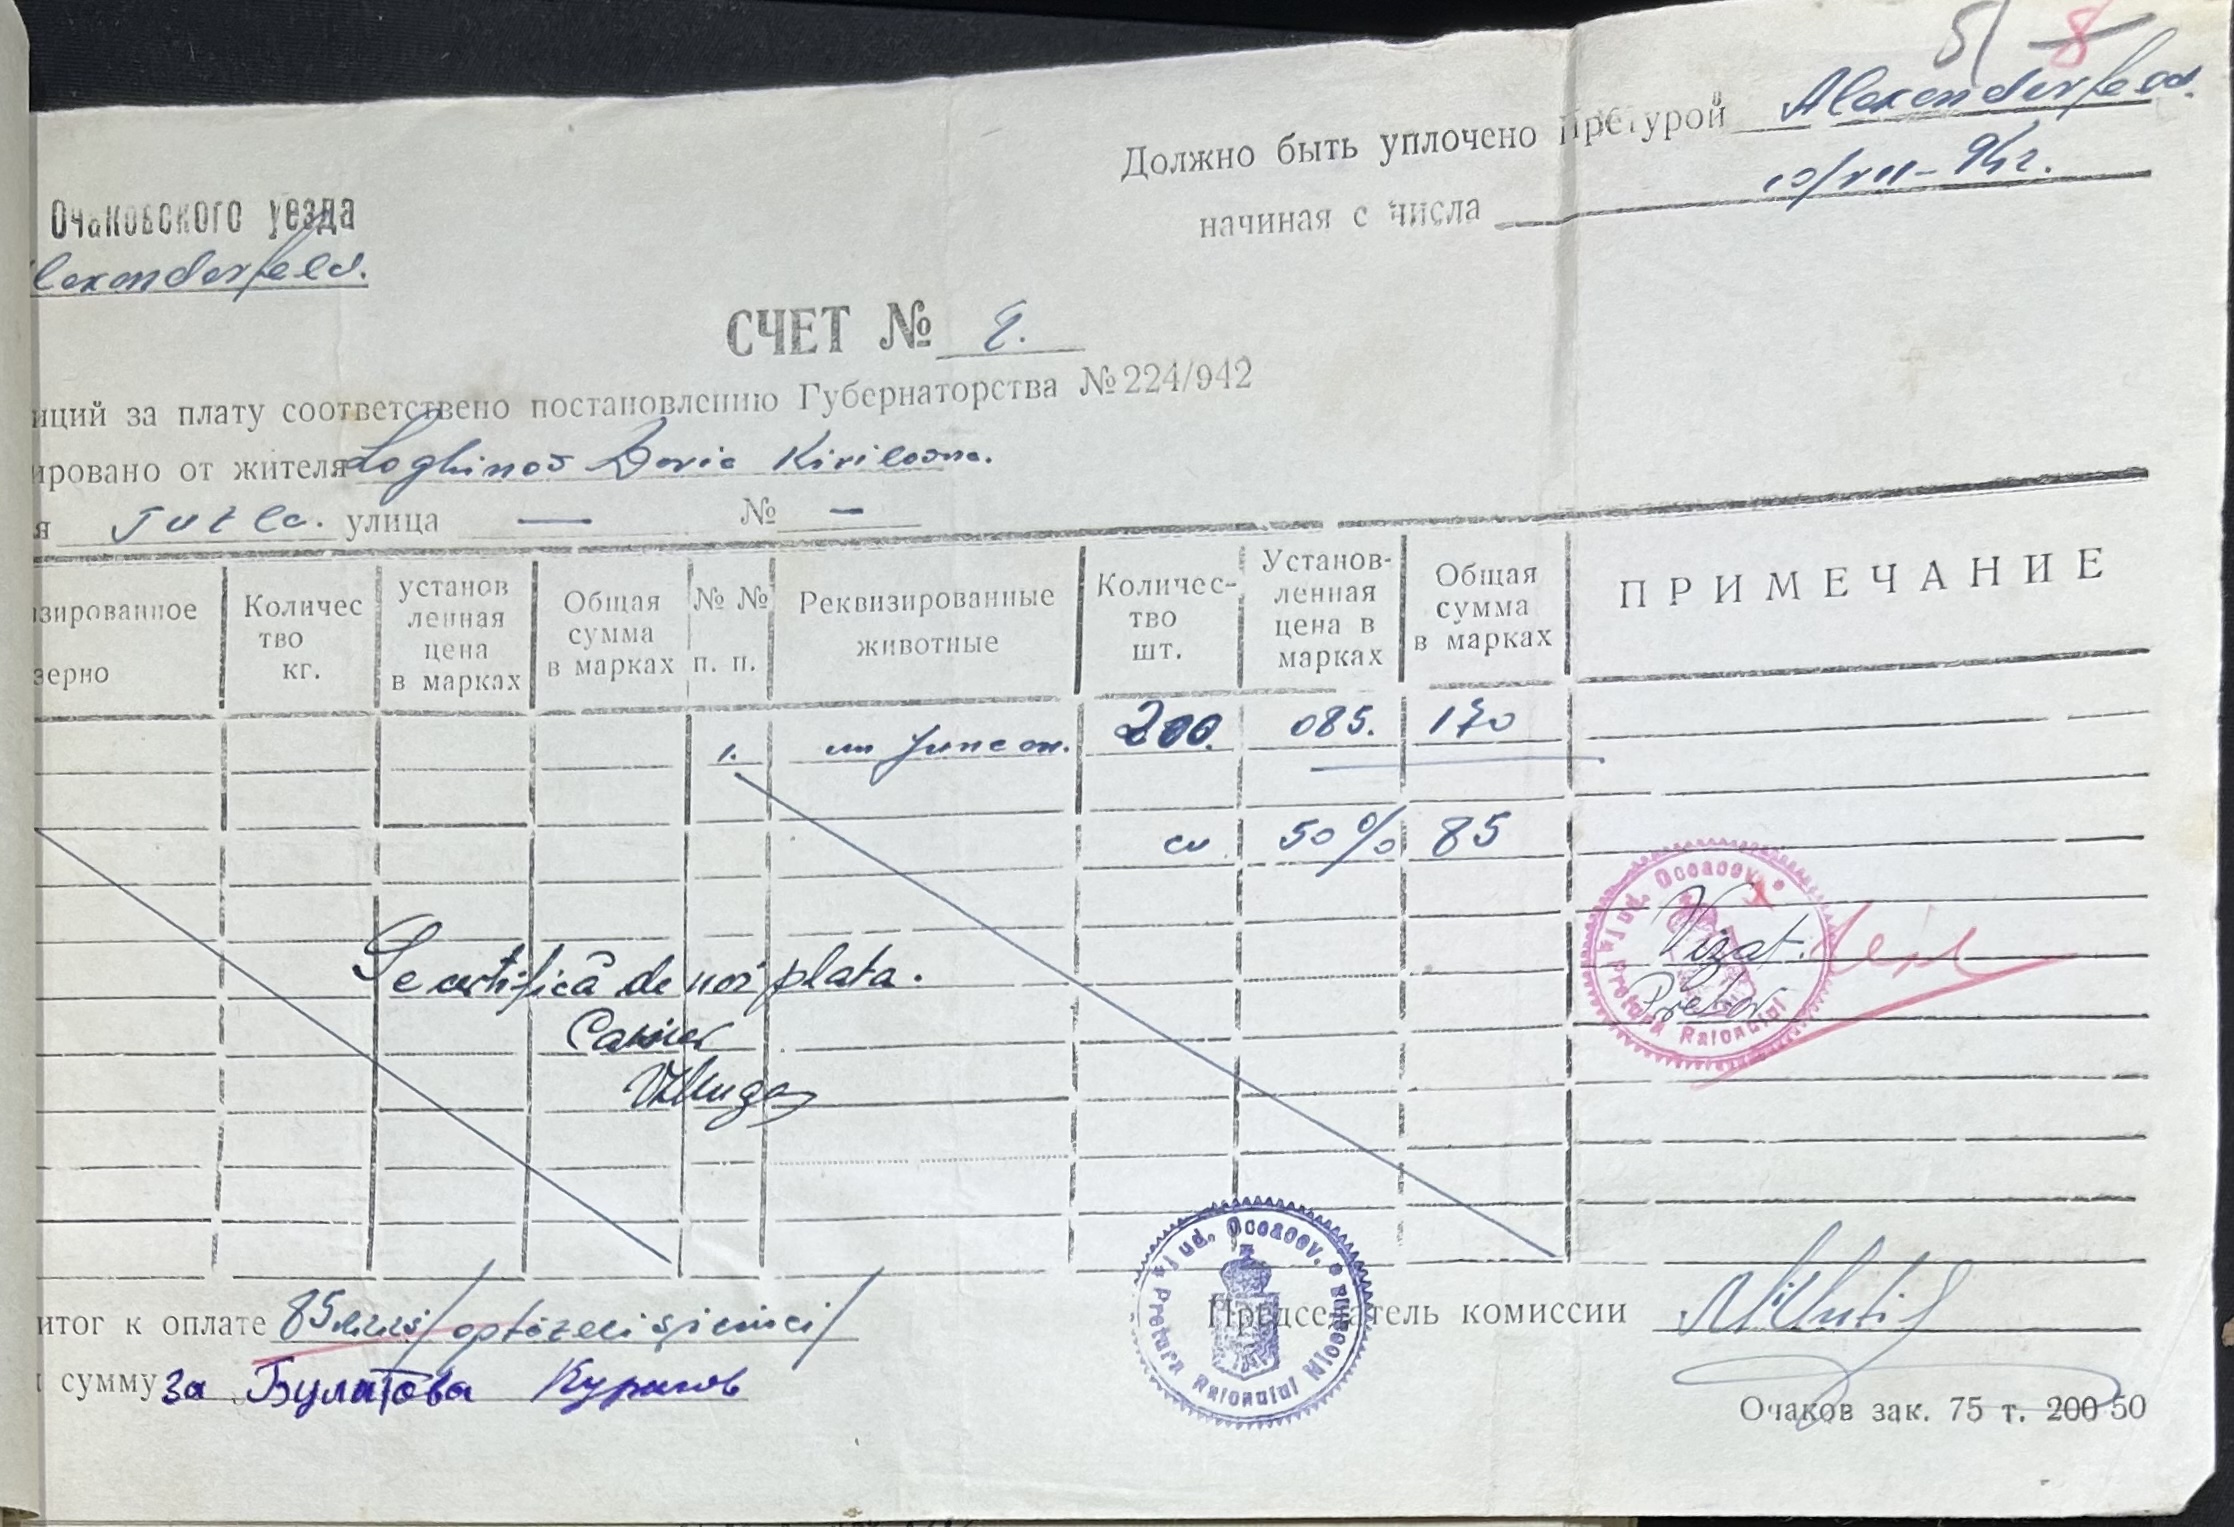 5/ 8
Должно быть уплочено Претурой Alexanderfeld.
начиная с числа 10/VII-942.
Очаковского уезда
lexanderfeld.
СЧЕТ №
иций за плату соответствено постановлению Губернаторства №224/942
ировано от жителя Loghinov Daria Kirilovna.
я улица — № —
зированное зерно
Количес тво кг.
установ ленная цена в марках
Общая сумма в марках
№ № п. п.
Реквизированные животные
Количес- тво шт.
Установ- ленная цена в марках
Общая сумма в марках
ПРИМЕЧАНИЕ
1. un juncan. 200. 085. 170
cu 50% 85
Se certifică de noi plata.
Casier
Vizat.
Pretor
Jud. Oceacov. Pretura Raionului
Jud. Oceacov. Pretura Raionului
итог к оплате 85 /optzeci și cinci/
Председатель комиссии
сумму за Булатова
Очаков зак. 75 т. 200 50